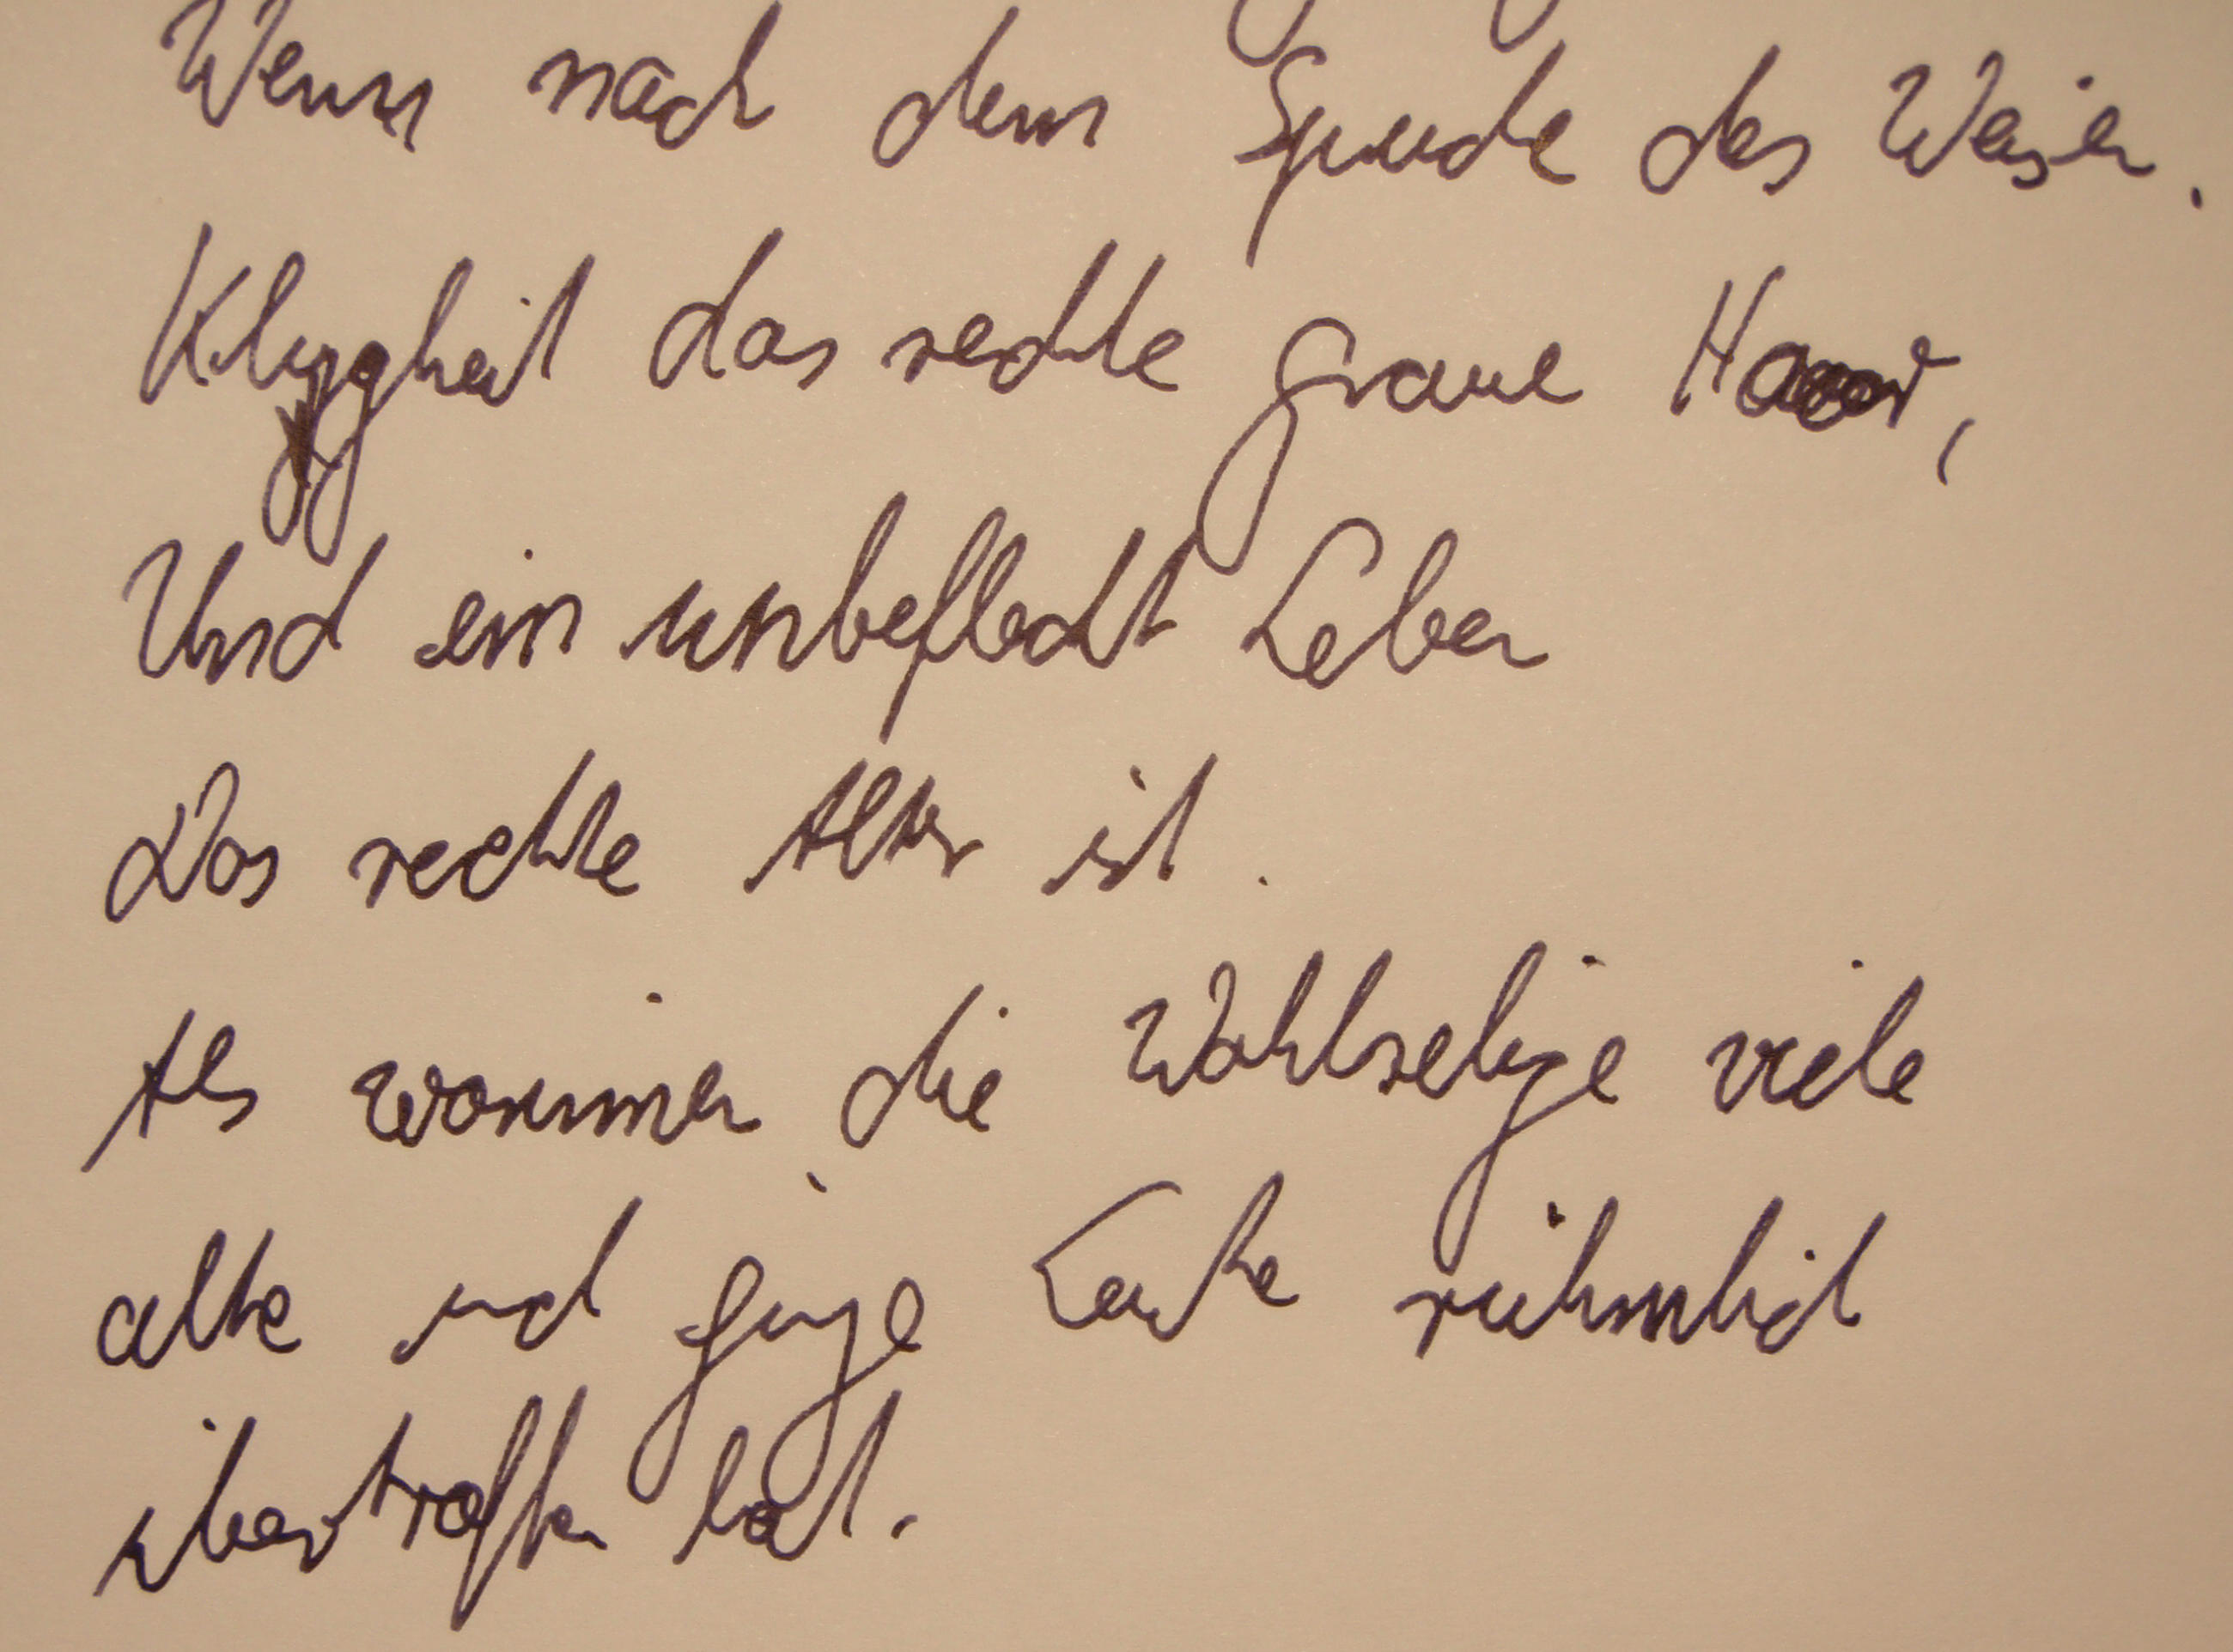 Wenn nach dem Spruche des Weisen.
Klugheit das rechte graue Haar,
Und ein unbefleckt Leben
Das rechte Alter ist.
Als worinnen die Wohlselige viele
alte und junge Leute rühmlich
übertroffen hat.